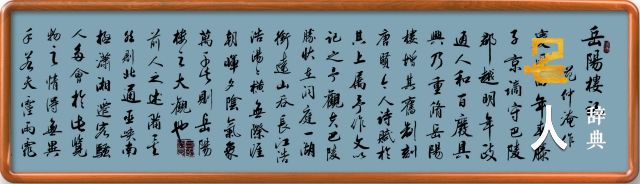 岳陽樓記
范仲淹作
四年春滕
子京謫守巴陵
郡越明年政
通人和百廢具
興乃重脩岳陽
樓增其舊制刻
唐賢今人詩賦於
其上屬予作文以
記之予觀夫巴陵
勝狀在洞庭一湖
銜遠山吞長江浩
浩湯湯橫無際涯
朝暉夕陰氣象
萬千此則岳陽
樓之大觀也
前人之述備矣
然則北通巫峽南
極瀟湘遷客騷
人多會於此覽
物之情得無異
乎若夫霪雨霏
名人
辞典